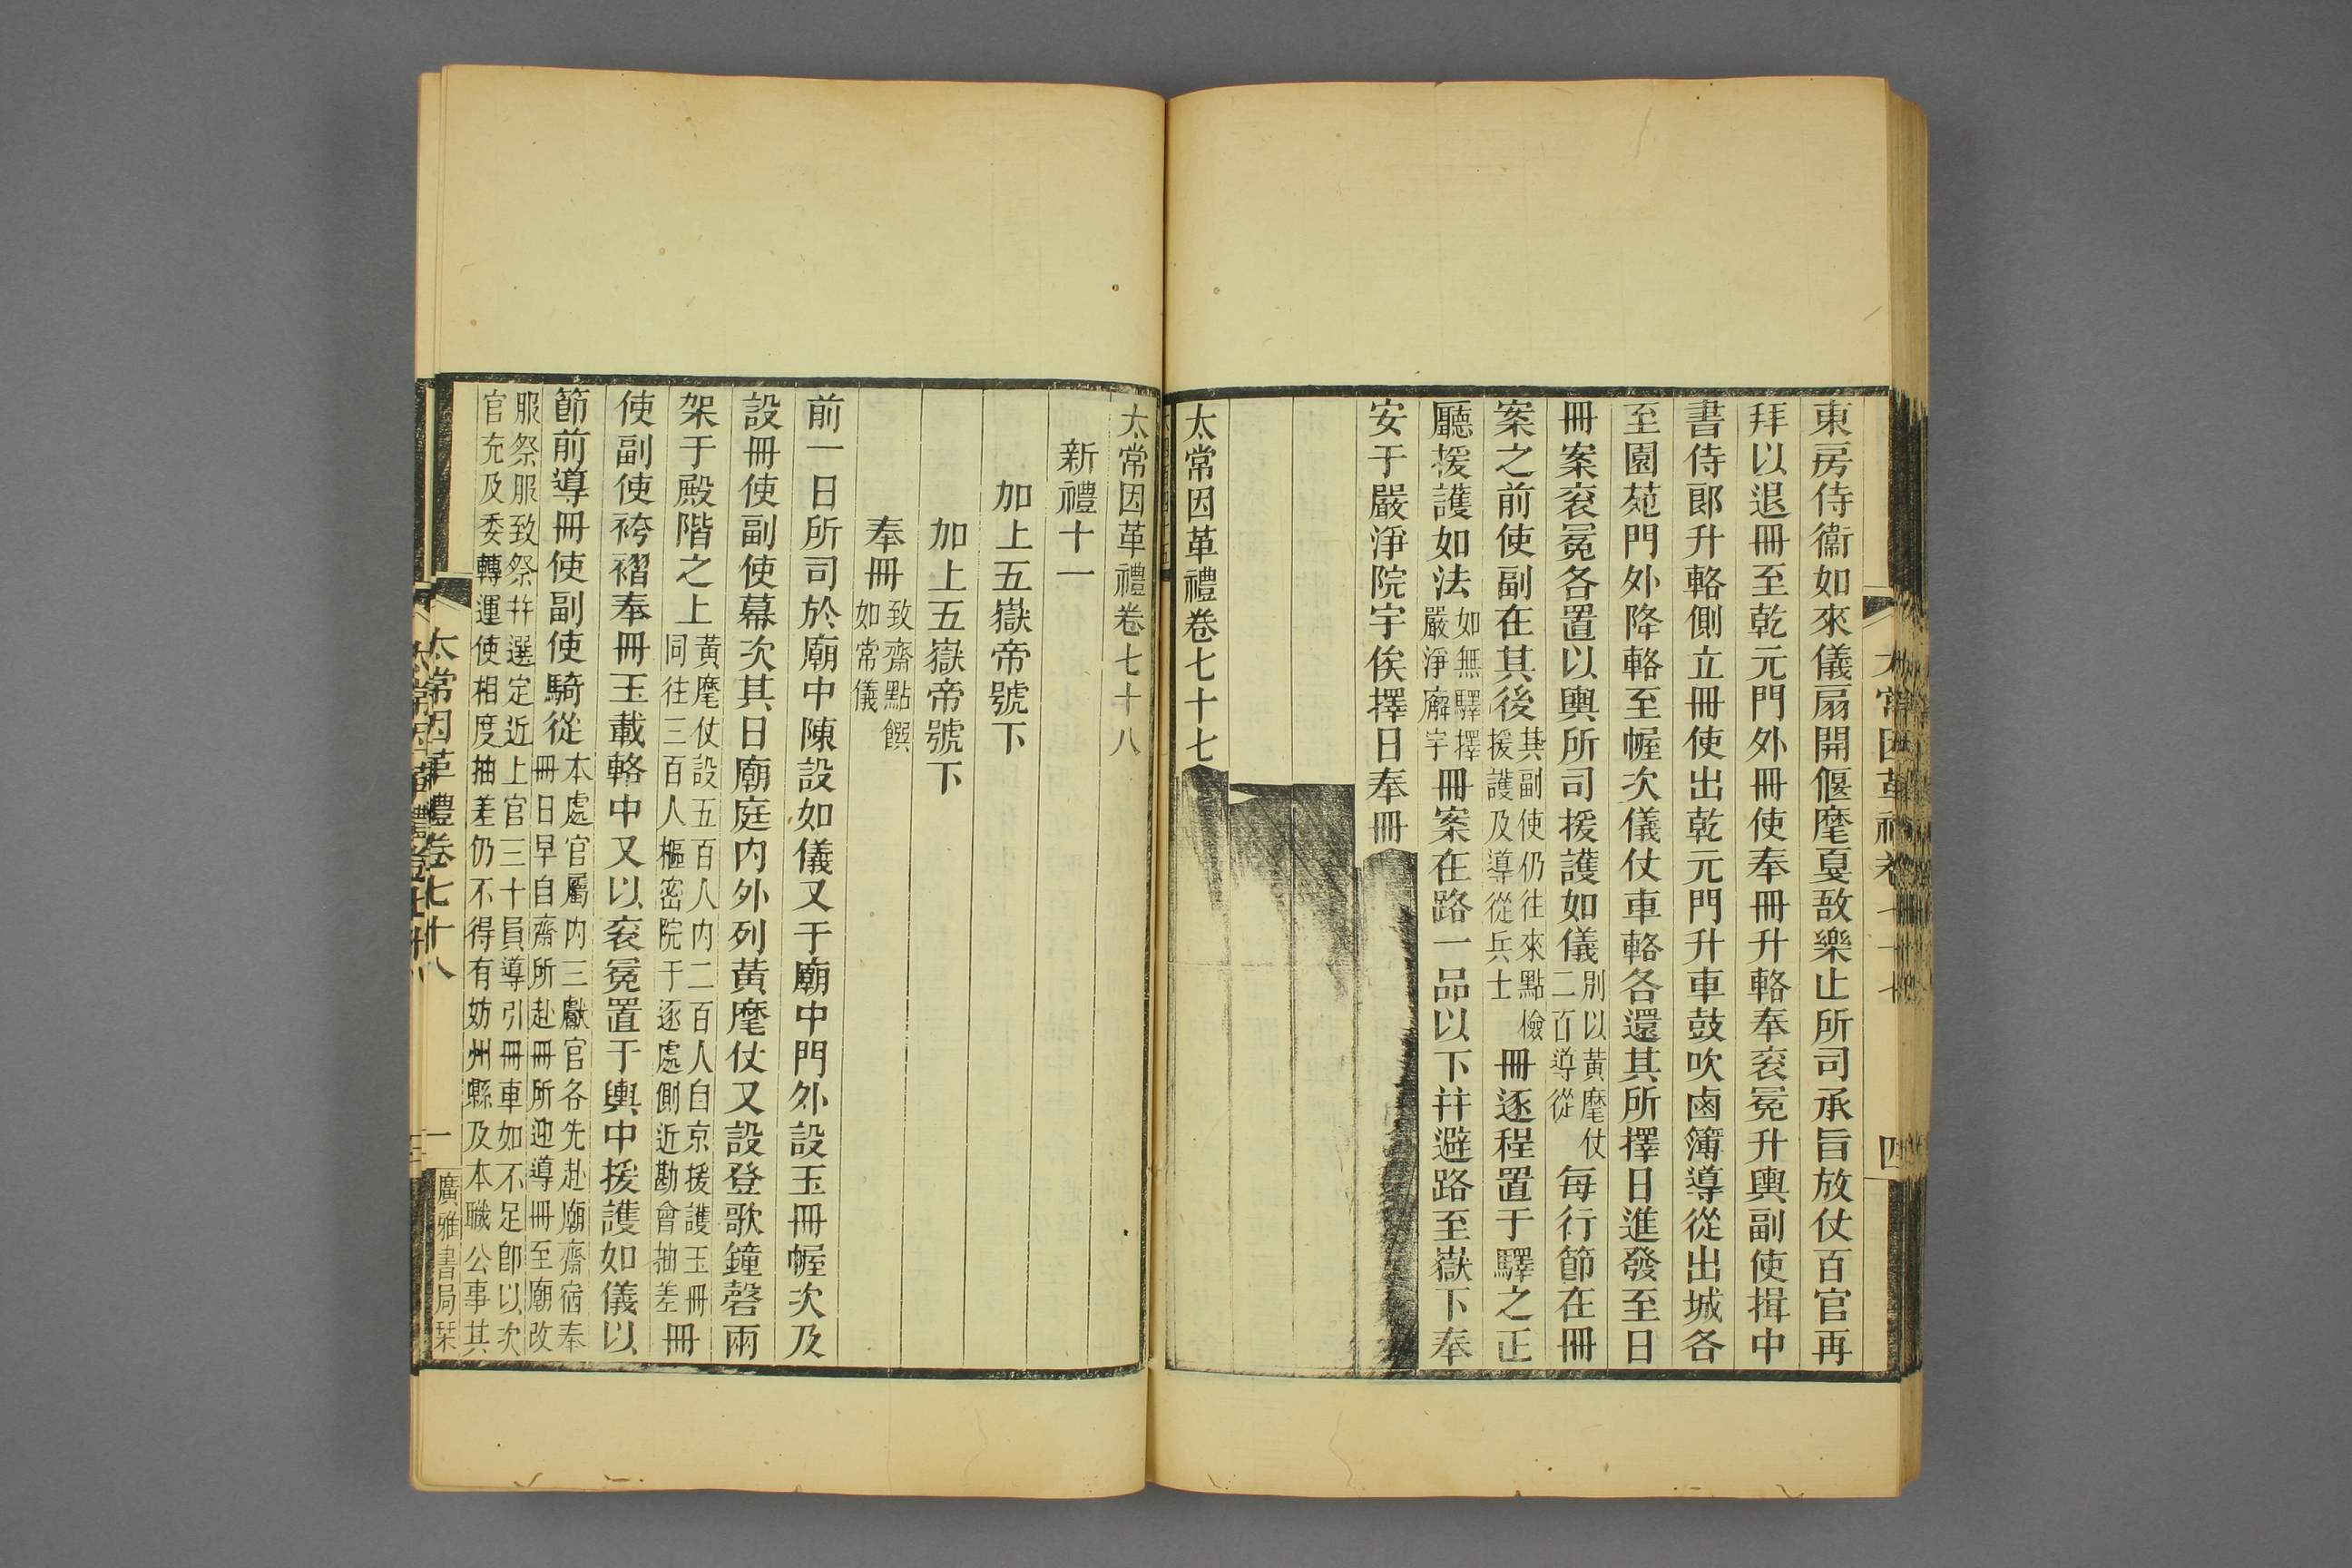 東房侍衞如來儀扇開偃麾戛敔樂止所司承旨放仗百官再
拜以退冊至乾元門外冊使奉冊升輅奉衮冕升輿副使揖中
書侍郎升輅側立冊使出乾元門升車鼓吹鹵簿導從出城各
至園苑門外降輅至幄次儀仗車輅各還其所擇日進發至日
冊案衮冕各置以輿所司援護如儀別以黃麾仗二百導從每行節在冊
案之前使副在其後其副使仍往來點檢援護及導從兵士冊逐程置于驛之正
廳援護如法如無驛擇嚴淨廨宇冊案在路一品以下幷避路至嶽下奉
安于嚴淨院宇俟擇日奉冊
太常因革禮卷七十七
太常因革禮卷七十八
新禮十一
加上五嶽帝號下
加上五嶽帝號下
奉冊致齋點饌如常儀
前一日所司於廟中陳設如儀又于廟中門外設玉冊幄次及
設冊使副使幕次其日廟庭內外列黃麾仗又設登歌鐘磬兩
架于殿階之上黃麾仗設五百人內二百人自京援護玉冊同往三百人樞密院于逐處側近勘會抽差冊
使副使袴褶奉冊玉載輅中又以衮冕置于輿中援護如儀以
節前導冊使副使騎從本處官屬內三獻官各先赴廟齋宿奉冊日早自齋所赴冊所迎導冊至廟改
服祭服致祭幷選定近上官三十員導引冊車如不足卽以次官充及委轉運使相度抽差仍不得有妨州縣及本職公事其
太常因革禮卷七十八
一
廣雅書局栞